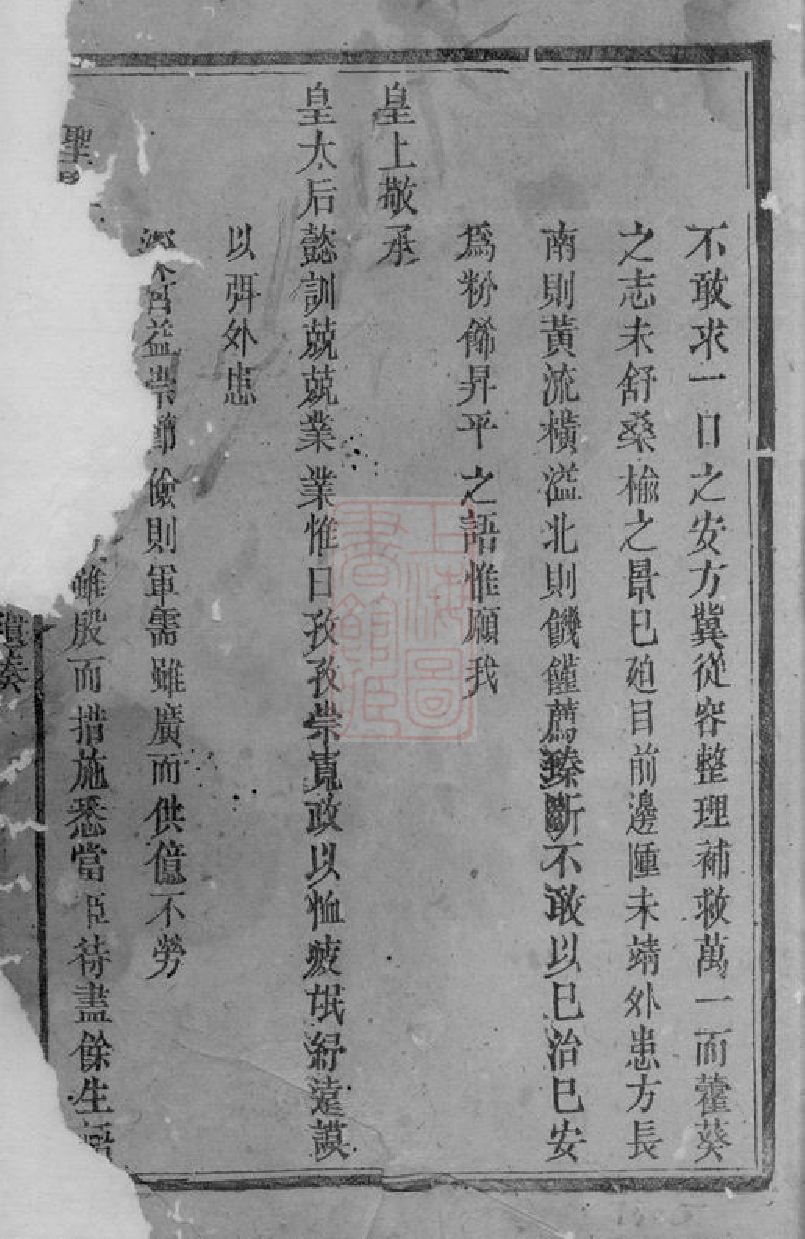 不敢求一日之安方冀從容整理補救萬一而藿葵
之志未舒桑榆之景已廹目前邊陲未靖外患方長
南則黃流橫溢北則饑饉薦臻斷不敢以已治已安
爲粉飾昇平之語惟願我
皇上敬承
皇太后懿訓兢兢業業惟日孜孜崇寬政以恤疲氓紓遠謨
以弭外患
深宮益崇節儉則軍需雖廣而供億不勞
聖
雖殷而措施悉當臣待盡餘生
遺奏
上海圖書館